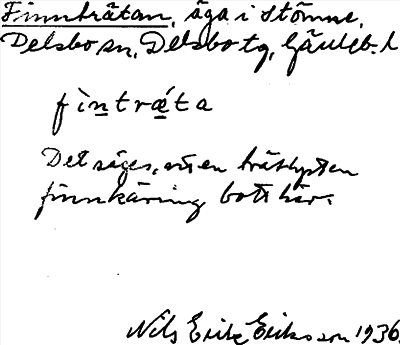 Finnträtan, äga i Stömne,
Delsbo sn, Delsbo tg, Gävleb. l
fìntrǽta
Det säges, att en trätlysten
finnkäring bott här.
Nils Erik Eriksson 1936.